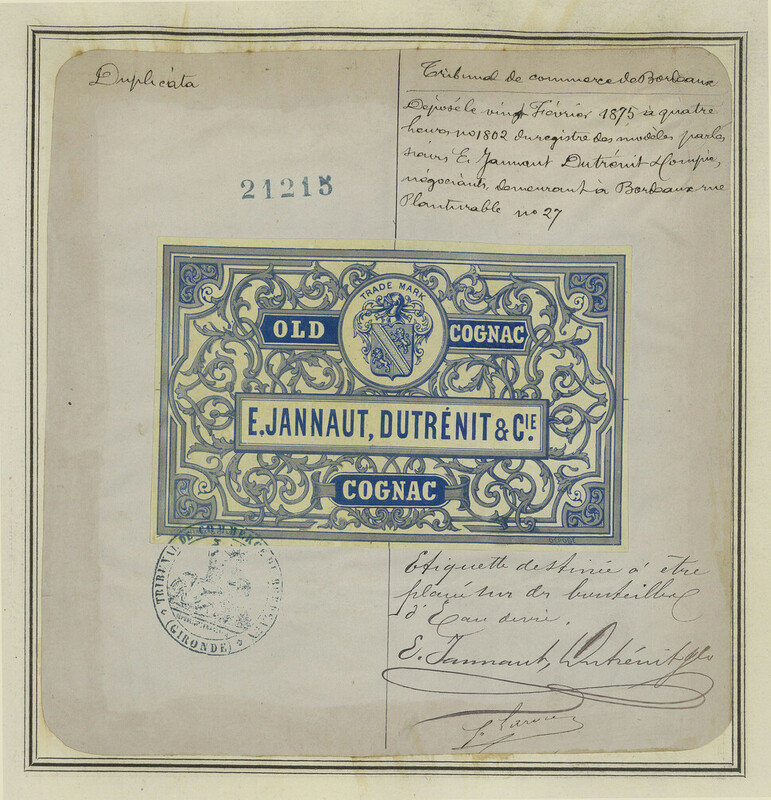 Duplicáta
Tribunal de commerce de Bordeaux
Déposé le vingt Février 1875 à quatre
heures no 1802 du registre des modèles par les
sieurs E. Jannaut Dutrénit & Compie,
négociants, demeurant à Bordeaux rue
Planturable no 27
21215
TRADE MARK
OLD COGNAC
E. JANNAUT, DUTRÉNIT & CIE.
COGNAC
TRIBUNAL DE COMMERCE DE BORDEAUX
(GIRONDE)
Etiquette destinée à être
placé sur des bouteilles
d'Eau de vie.
E. Jannaut, Dutrénit